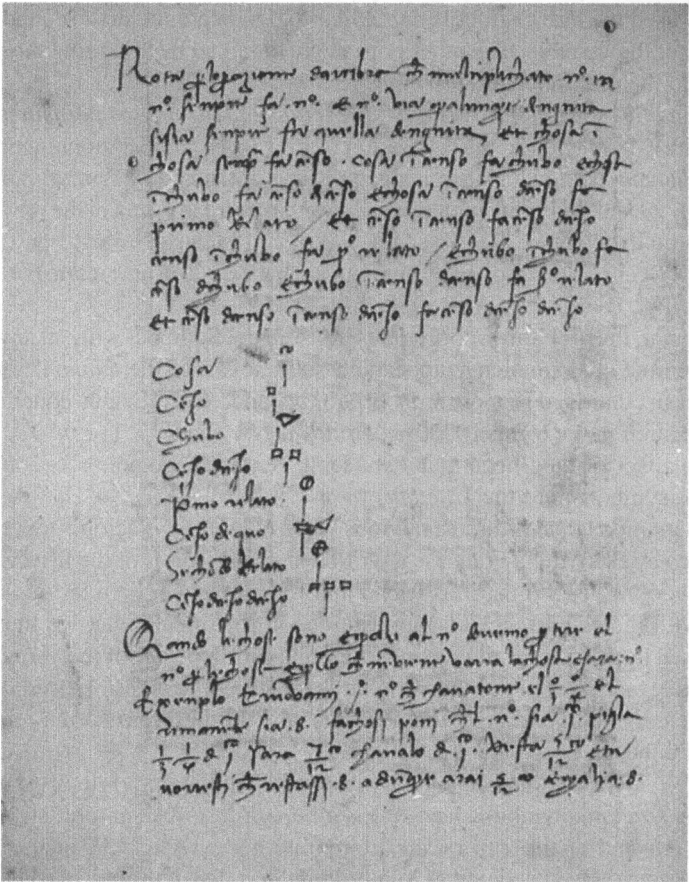 Nota per la operazione che multiplichato n.º in
n.º senpre fa n.º. E n.º via qualunque dengnita
sisia senpre fa quella dengnita. Et chosa ī
chosa senpre fa censo. Cosa ī censo fa chubo echosa
ī chubo fa censo de censo echosa ī censo de censo fa
primo Relato / Et censo ī censo fa censo de censo
censo ī chubo fa p.º relato / Echubo ī chubo fa
censo de chubo Echubo ī censo de censo fa s.º relato
et censo de censo ī censo de censo fa censo de censo de censo
Cosa 1 co
Censo 1 □
Chubo 1
Censo de censo 1 □□
Primo relato 1
Censo de cubo 1
Sechondo Relato 1
Censo de censo de censo 1 □□□
Quando le chose sono equali al n.º devemo partire el
n.º per le chose equello che ne viene varra la chosa chara n.º
Exenplo trovami 1 n.º che chavatone el 1/3 1/4 el
rimanente sia .8. fa chosi poni che 'l n.º sia 1 co piglia
1/3 1/4 de 1 co sara 7/12 co chavalo de 1 co resta 5/12 co e tu
vorresti che restassi .8. adunque arai 5/12 co equali a .8.